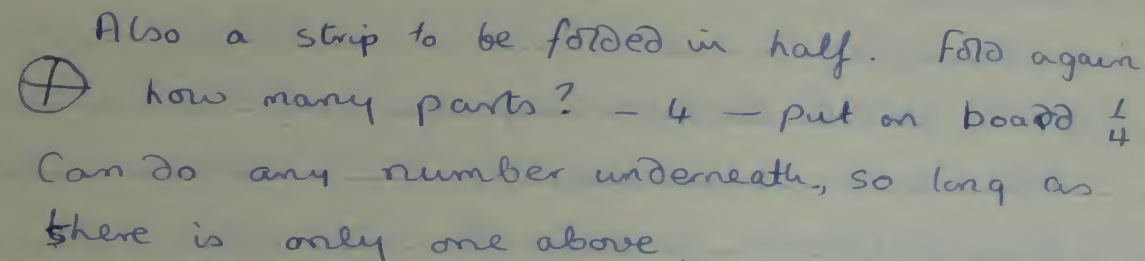 Also a strip to be folded in half. Fold again
how many parts? – 4 – put on board 1/4
Can do any number underneath, so long as
there is only one above